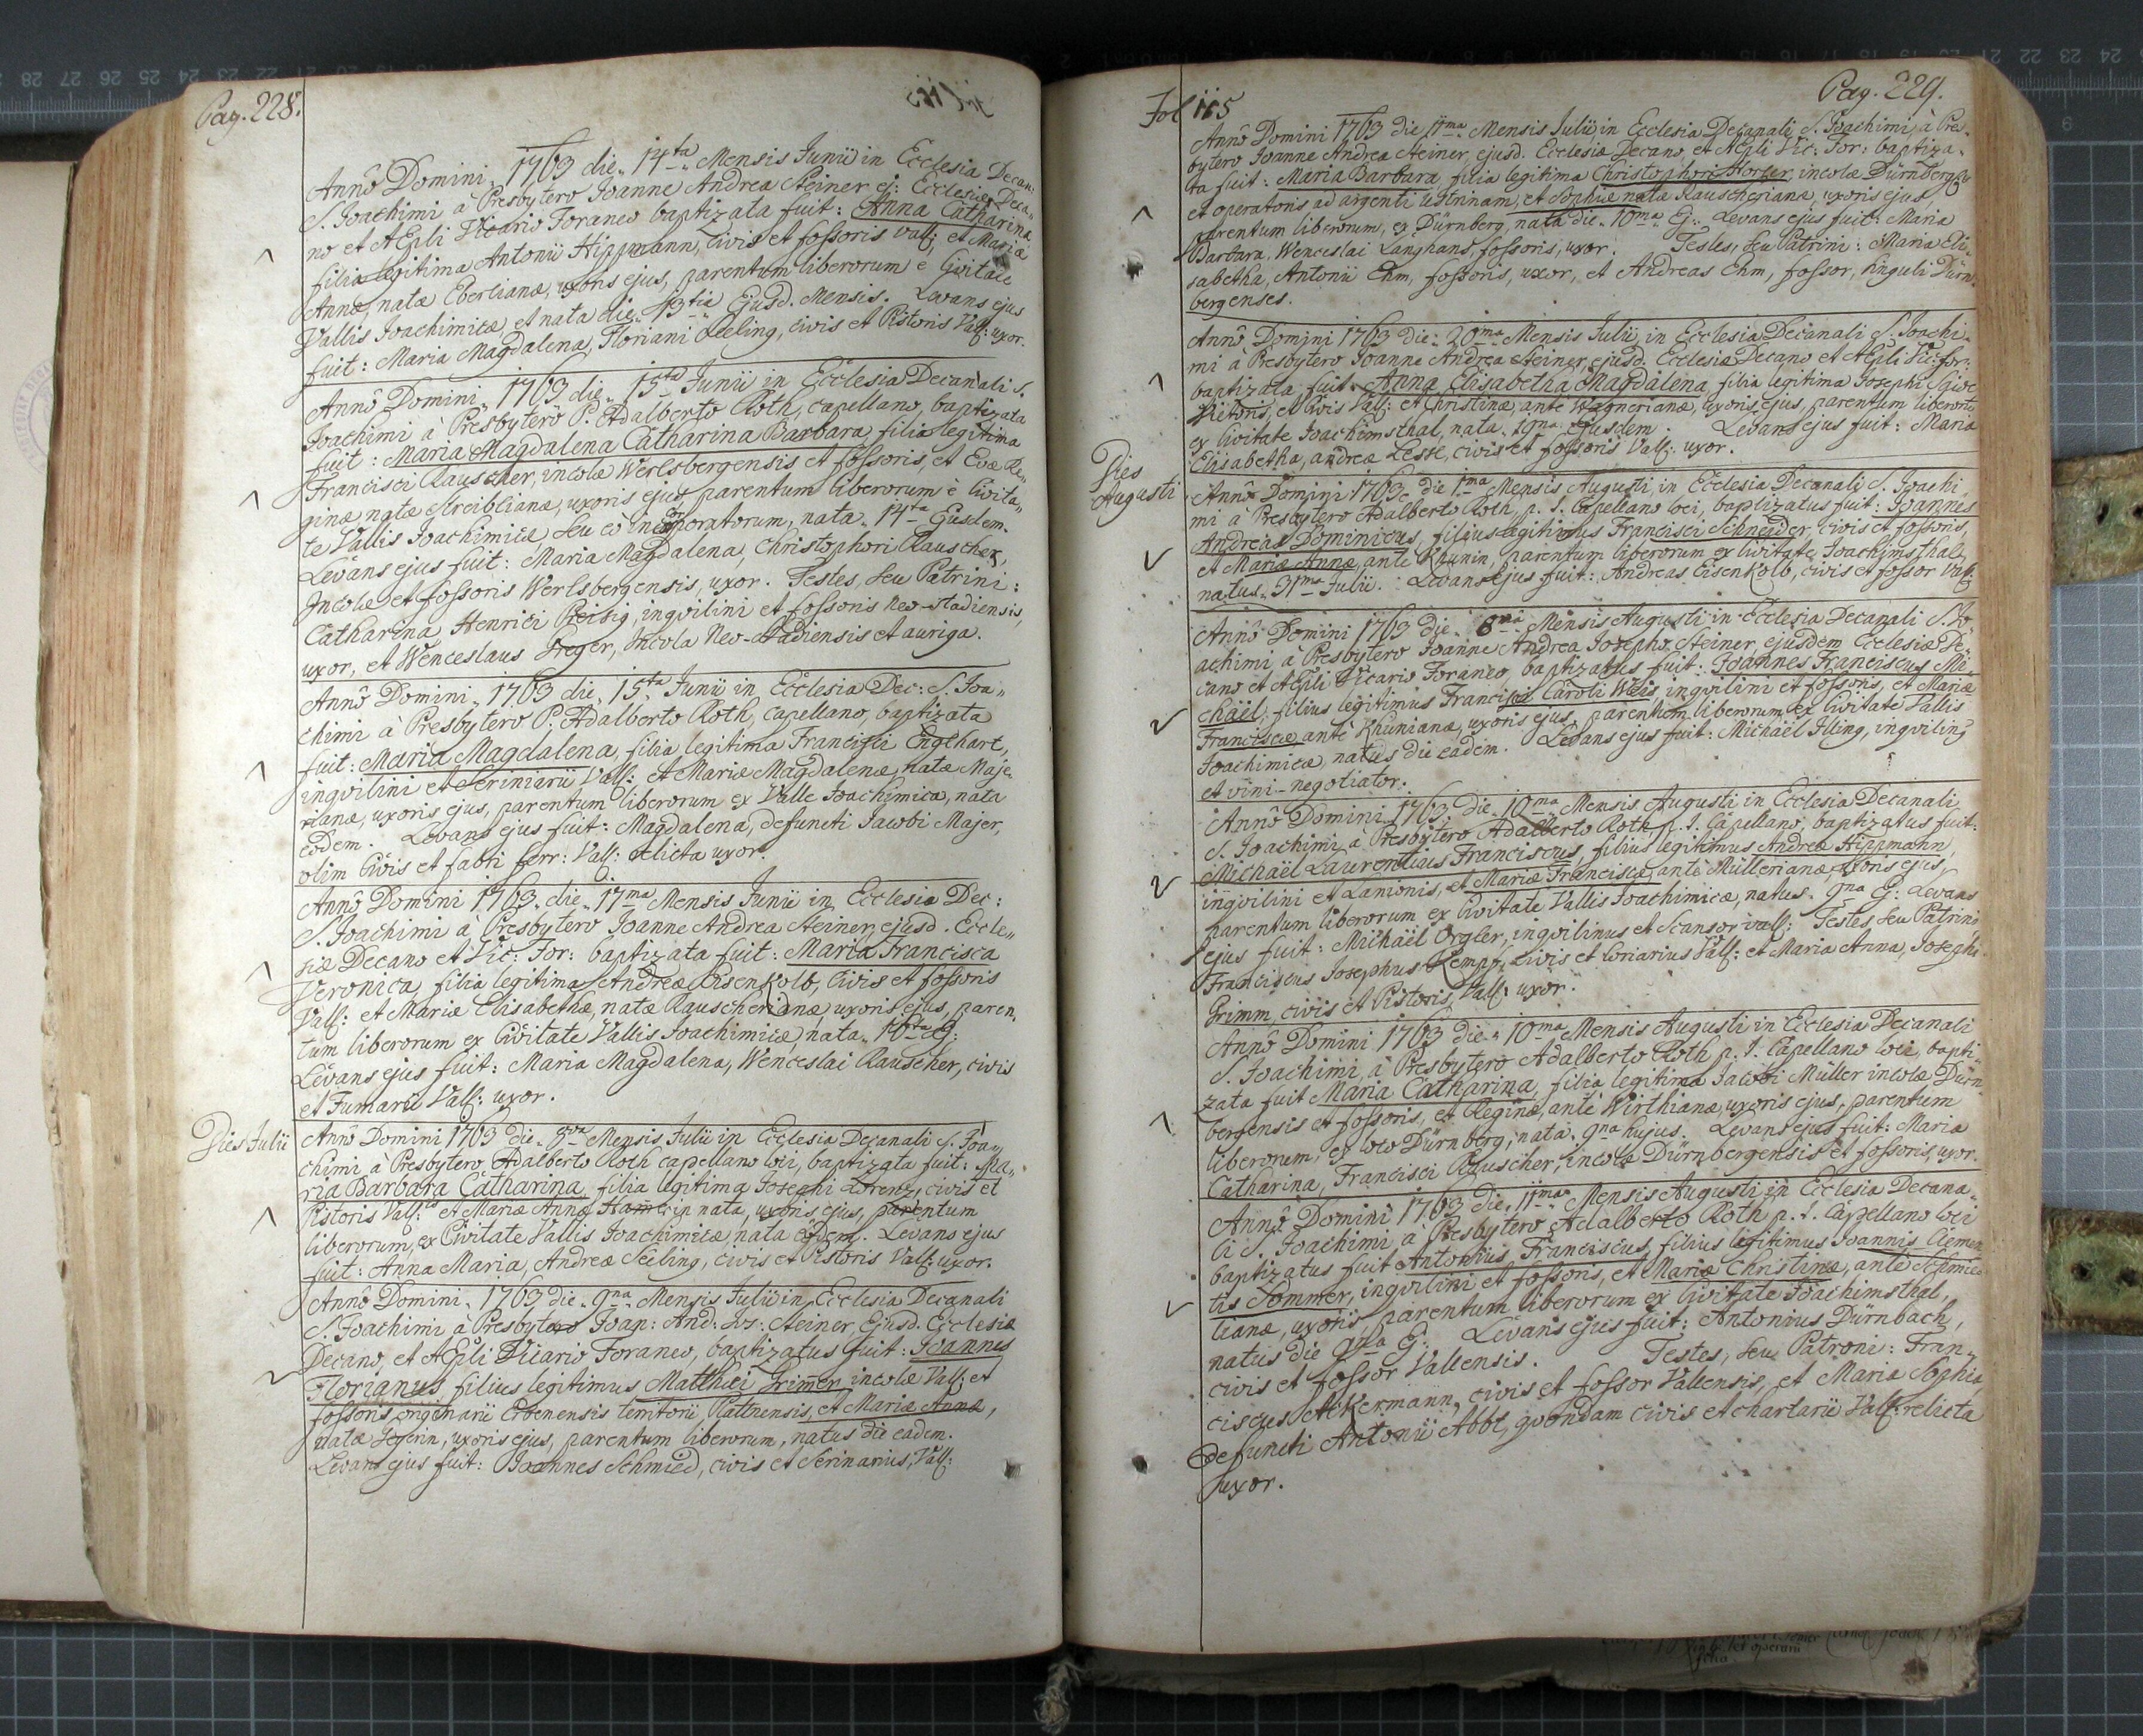 Pag. 228.
Annô Domini 1763 die 14ta Mensis Junii in Ecclesia Decan:
S. Joachimi à Presbytero Joanne Andrea Steiner ej: Ecclesiæ Deca„
no et AEpli Vicario Foraneo baptizata fuit: Anna Catharina
filia legitima Antonii Hippmann, civis et fossoris Vall: et Mariæ
Annæ, natæ Eberlianæ, uxoris ejus, parentum liberorum è Civitate
Vallis Joachimicæ, et nata die 13tia Ejusd. Mensis. Levans ejus
fuit: Maria Magdalena, Floriani Seeling, civis et Pistoris Vall: uxor.
Annô Domini 1763 die 15ta Junii in Ecclesia Decanali S.
Joachimi à Presbytero P. Adalberto Roth, capellano, baptizata
fuit: Maria Magdalena Catharina Barbara filia legitima
Francisci Rauscher, incolæ Werlsbergensis et fossoris, et Evæ Re„
ginæ natæ Streiblianæ, uxoris ejus, parentum liberorum è Civita„
te Vallis Joachimicæ seu eò incorporatorum, nata 14ta Ejusdem.
Levans ejus fuit: Maria Magdalena, Christophori Rauscher,
Incolæ et fossoris Werlsbergensis, uxor. Testes, seu Patrini:
Catharina Henrici Reisig, inqvilini et fossoris Neo-stadiensis,
uxor, et Wenceslaus Greger, Incola Neo-stadiensis et auriga.
Annô Domini 1763 die 15ta Junii in Ecclesia Dec: S. Joa„
chimi à Presbytero P. Adalberto Roth, Capellano, baptizata
fuit: Maria Magdalena, filia legitima Francisci Englhart,
inqvilini et scriniarii Vall: et Mariæ Magdalenæ, natæ Maje„
rianæ, uxoris ejus, parentum liberorum ex Valle Joachimica, nata
eodem. Levans ejus fuit: Magdalena, defuncti Jacobi Majer,
olim Civis et fabri ferr: Vall: relicta uxor.
Annô Domini 1763 die 17ma Mensis Junii in Ecclesia Dec:
S. Joachimi à Presbytero Joanne Andrea Steiner, ejusd. Eccle„
siæ Decano et Vic: For: baptizata fuit: Maria Francisca
Veronica, filia legitima Andreæ Eisenkolb, Civis et fossoris
Vall: et Mariæ Elisabethæ, natæ Rauscherianæ, uxoris ejus, paren„
tum liberorum ex Civitate Vallis Joachimicæ, nata 16ta Ej:
Levans ejus fuit: Maria Magdalena, Wenceslai Rauscher, civis
et Fumarii Vall: uxor.
Dies Julii
Annô Domini 1763 die 8va Mensis Julii in Ecclesia Decanali S. Joa„
chimi à Presbytero Adalberto Roth capellano loci, baptizata fuit: Ma„
ria Barbara Catharina, filia legitima Josephi Lorenz, civis et
Pistoris Vall: et Mariæ Annæ nata, uxoris ejus, parentum
liberorum, ex Civitate Vallis Joachimicæ, nata eodem. Levans ejus
fuit: Anna Maria, Andreæ Seeling, civis et Pistoris Vall: uxor.
Annô Domini 1763 die 9na Mensis Julii in Ecclesia Decanali
S. Joachimi à Presbytero Joan: And: Jos: Steiner, Ejusd. Ecclesiæ
Decano, et AEpli Vicario Foraneo, baptizatus fuit: Joannes
Florianus, filius legitimus Matthæi Grimer, incolæ Vall: et
fossoris, originarii territorii, et Mariæ Annæ,
natæ, uxoris ejus, parentum liberorum, natus die eadem.
Levans ejus fuit: Joannes Schmied, civis et Scrinarius, Vall:
Fol 115
Pag. 229.
Annô Domini 1763 die 11ma Mensis Julii in Ecclesia Decanali S. Joachimi, à Pres„
bytero Joanne Andrea Steiner, ejusd. Ecclesiæ Decano et AEpli Vic: For: baptiza„
ta fuit: Maria Barbara, filia legitima Christophori, incolæ Dürnberg:
et operatoris ad argenti, et Sophiæ natæ Rauscherianæ, uxoris ejus,
parentum liberorum, ex Dürnberg, nata die 10ma Ej: Levans ejus fuit: Maria
Barbara, Wenceslai Langhans, fossoris, uxor. Testes, seu Patrini: Maria Eli„
sabetha, Antonii Ehm, fossoris, uxor, et Andreas Ehm, fossor, singuli Dürn„
bergenses.
Annô Domini 1763 die 20ma Mensis Julii, in Ecclesia Decanali S. Joachi„
mi à Presbytero Joanne Andrea Steiner, ejusd. Ecclesiæ Decano et AEpli Vic: for:
baptizata fuit: Anna Elisabetha Magdalena, filia legitima Josephi
Pictoris, et Civis Vall: et Christinæ, antè Wagnerianæ, uxoris ejus, parentum liberorum
ex Civitate Joachimsthal, nata 19na Ejusdem. Levans ejus fuit: Maria
Elisabetha, Andreæ, civis et fossoris Vall: uxor.
Dies
Augusti
Annô Domini 1763 die 1ma Mensis Augusti, in Ecclesia Decanali S. Joachi„
mi à Presbytero Adalberto Roth, p. t. Capellano loci, baptizatus fuit: Joannes
Andreas Dominicus, filius legitimus Francisci Schneider, civis et fossoris,
et Mariæ Annæ, antè Khunin, parentum liberorum ex Civitate Joachimsthal,
natus 31ma Julii. Levans ejus fuit: Andreas Eisenkolb, civis et fossor Vall:
Annô Domini 1763 die 6ta Mensis Augusti in Ecclesia Decanali S. Jo„
achimi à Presbytero Joanne Andrea Josepho Steiner, ejusdem Ecclesiæ De„
cano et AEpli Vicario Foraneo, baptizatus fuit: Joannes Franciscus Mi„
chaël, filius legitimus Francisci Caroli Weis, inqvilini et fossoris, et Mariæ
Franciscæ antè Khunianæ, uxoris ejus, parentum liberorum ex Civitate Vallis
Joachimicæ, natus die eadem. Levans ejus fuit: Michaël Illing, inqvilinus
et vini-negotiator.
Annô Domini 1763 die 10ma Mensis Augusti in Ecclesia Decanali
S. Joachimi, à Presbytero Adalberto Roth, p. t. Capellano, baptizatus fuit:
Michaël Laurentius Franciscus, filius legitimus Andreæ Hippmann,
inqvilini et Lanionis, et Mariæ Franciscæ, antè Müllerianæ, uxoris ejus,
parentum liberorum ex Civitate Vallis Joachimicæ, natus 9na Ej: Levans
ejus fuit: Michaël Orgler, inqvilinus et Scansor Vall: Testes seu Patrini,
Franciscus Josephus Kempf, Civis et Coriarius Vall: et Maria Anna, Josephi
Grimm, civis et Pistoris, Vall: uxor.
Annô Domini 1763 die 10ma Mensis Augusti in Ecclesia Decanali
S. Joachimi, à Presbytero Adalberto Roth p. t. Capellano loci, bapti„
zata fuit Maria Catharina, filia legitima Jacobi Müller incolæ Dürn„
bergensis et fossoris, et Reginæ, antè Wirthianæ, uxoris ejus, parentum
liberorum, ex loco Dürnberg, nata 9na hujus. Levans ejus fuit: Maria
Catharina, Francisci Rauscher, incolæ Dürnbergensis et fossoris, uxor.
Annô Domini 1763 die 11ma Mensis Augusti in Ecclesia Decana„
li S. Joachimi à Presbytero Adalberto Roth p. t. Capellano loci
baptizatus fuit Antonius Franciscus, filius legitimus Joannis Clemen„
tis Sommer, inqvilini et fossoris, et Mariæ Christinæ, antè Schmied„
lianæ, uxoris, parentum liberorum ex Civitate Joachimsthal,
natus die 9na Ej: Levans ejus fuit: Antonius Dürnbach,
civis et fossor Vallensis. Testes, seu Patroni: Fran„
ciscus Ackermann, civis et fossor Vallensis, et Maria Sophia,
defuncti Antonii Abbt, qvondam civis et chartarii Vall: relicta
uxor.